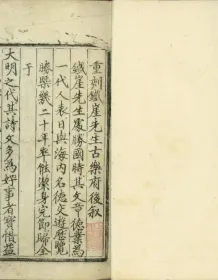 重刻鐵崖先生古樂府後叙
鐵崖先生處勝國時其文章德業為
一代人表日與海内名德交遊歷覽
勝槩幾二十年卒能潔身完節歸全
于
大明之代其詩文多為好事者寶惜